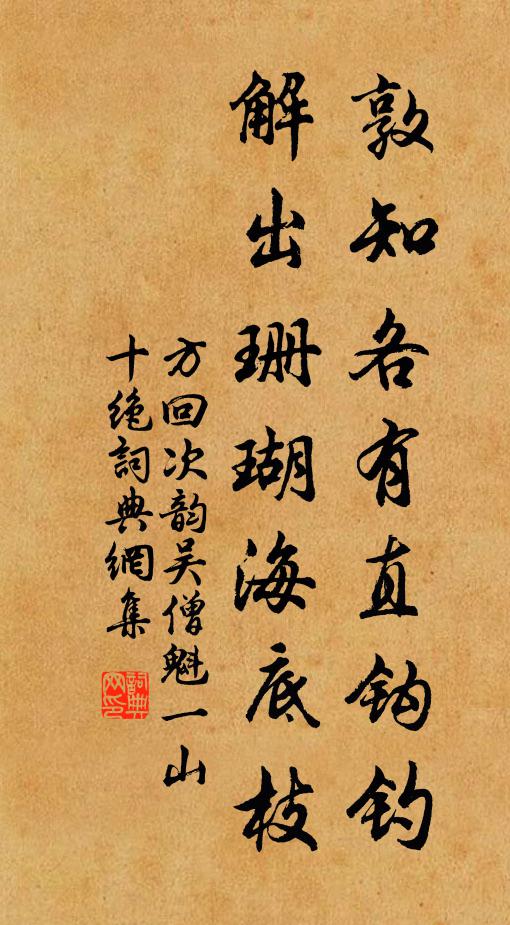 敦知各有直钩钓
解出珊瑚海底枝
方回次韵吴僧魁一山
十绝詞典網集
詞典网印